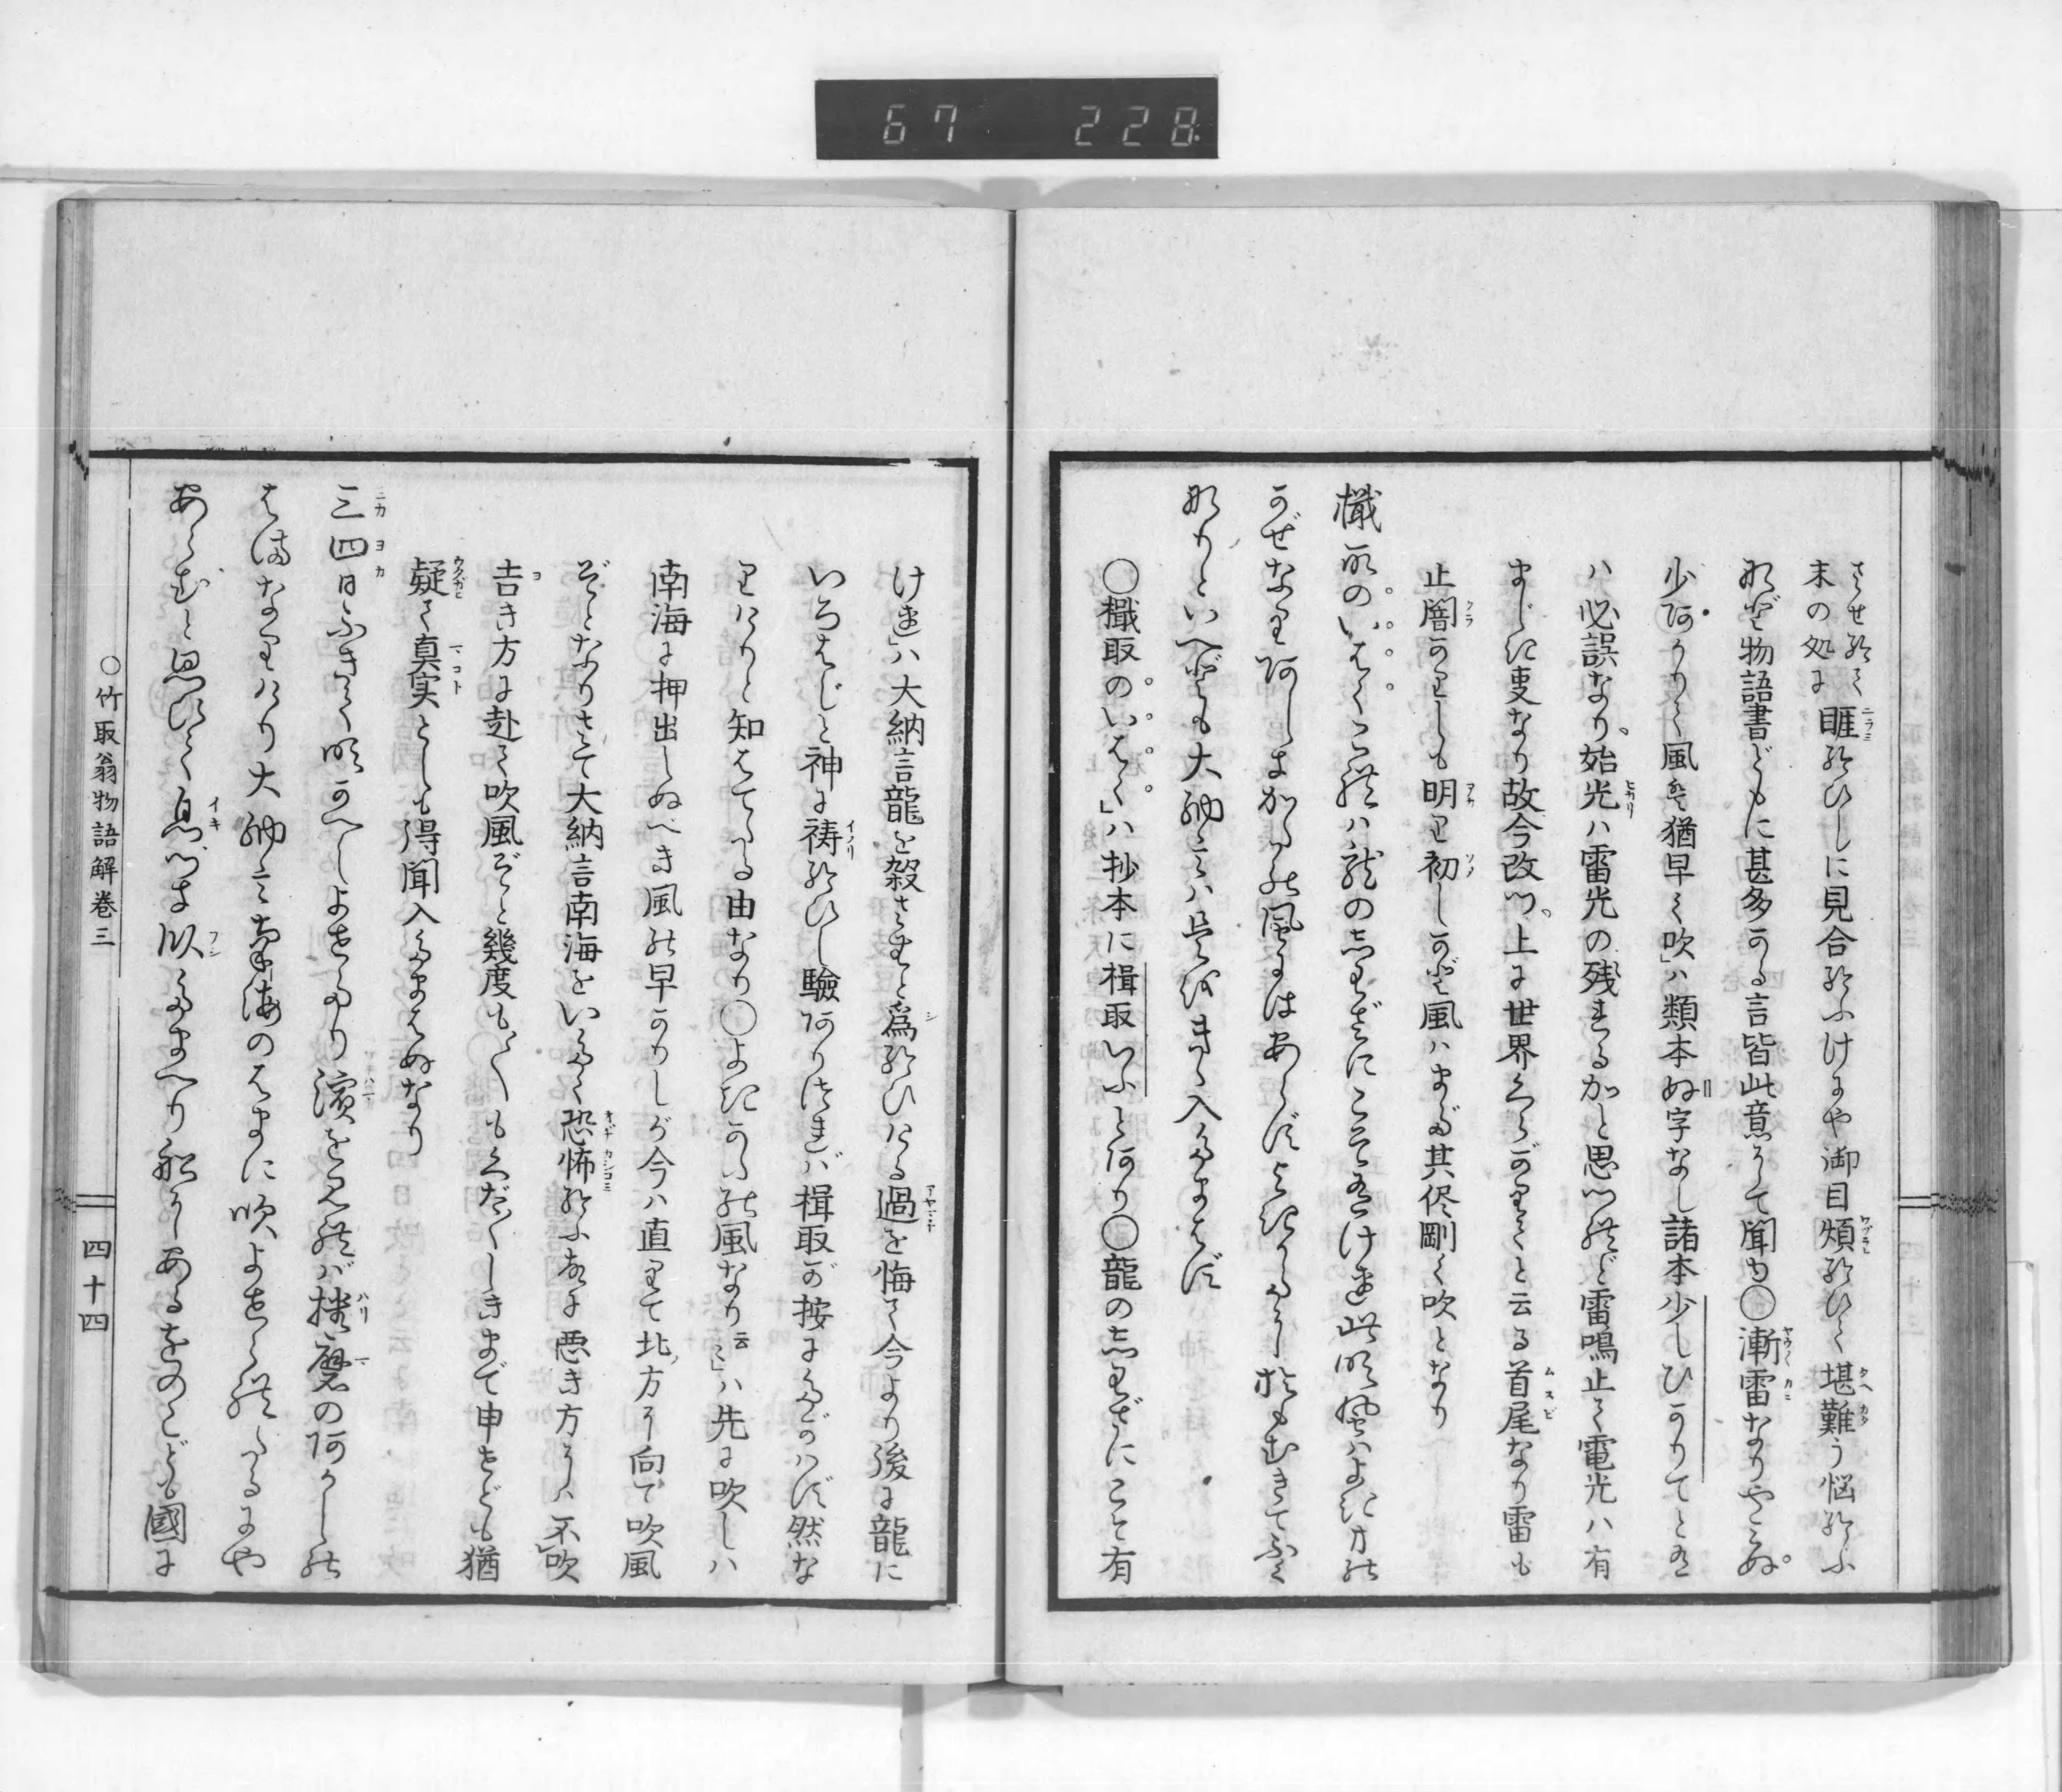 67 228
させ給て
末の処に睚給ひしに見合給ふけにや御目煩給ひて堪難う悩給ふ
など物語書どもに甚多かる言皆此意にて聞ゆ○漸雷なりやみぬ。
少阿かりて風は猶早く吹」ハ類本ぬ字なし諸本少しひかりてとある
ハ必誤なり。始光ハ雷光の残れるかと思へれど雷鳴止て電光ハ有
まじき事なり故今改つ。上に世界くらがりてと云る首尾なり雷も
止闇かりしも明り初しかど風ハまだ其侭剛く吹となり
檝取のいはくこれハ龍のしわざにこそ有けれ此吹風ハよき方の
かぜなり阿しきかたの風にはあらずよきかたに趣むきてふく
なりといへども大納言ハ是を聞き入たまはず
○檝取のいはく」ハ抄本に楫取いふと阿り○龍のしわざにこそ有
けれ」ハ大納言龍を殺さむと為給ひける過を悔て今より後に龍に
いろはじと神に祷給ひし驗阿りつれバ楫取が按にたがハず然な
りけりと知はてたる由なり○よきかたの風なり云々」ハ先に吹しハ
南海に押出しぬべき風の早かりしが今ハ直りて北ノ方に向て吹風
ぞとなりさて大納言南海をいたく恐怖給ふ故に悪き方にハ不吹
吉き方に赴て吹風ぞと幾度も〳〵もくだ〳〵しきまで申せども猶
疑て真実としも得聞入たまはぬなり
三四日ふきて吹かへしよせたり濱を見れバ播磨の阿かしの
はまなりけり大納言南海のはまに吹よせられたるにや
あらむと思ひて息つき臥たまへり船にあるをのこども國に
○竹取翁物語解巻三
四十四